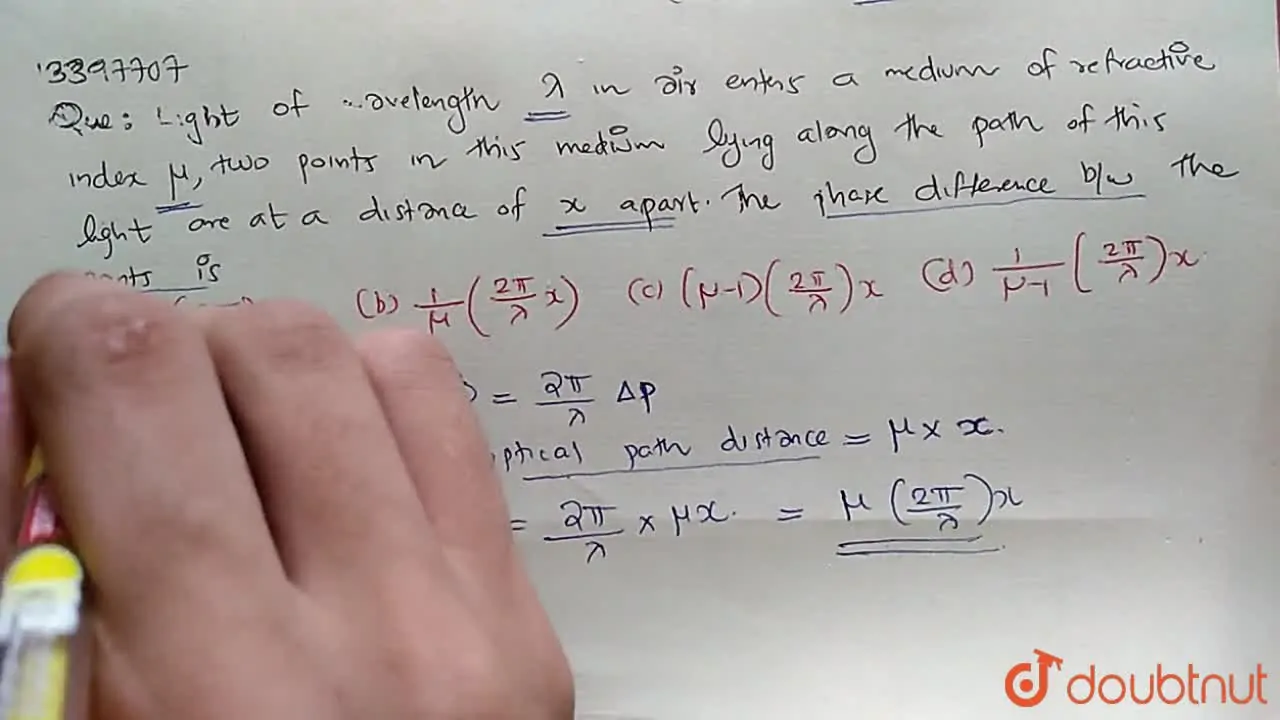 3397707
Que: Light of wavelength λ in air enters a medium of refractive
index μ, two points in this medium lying along the path of this
light are at a distance of x apart. The phase difference b/w the
is
(b) 1/μ (2π/λ x) (c) (μ-1)(2π/λ)x (d) 1/μ-1 (2π/λ)x
= 2π/λ Δp
ptical path distance = μ × x.
= 2π/λ × μx. = μ(2π/λ)x
doubtnut